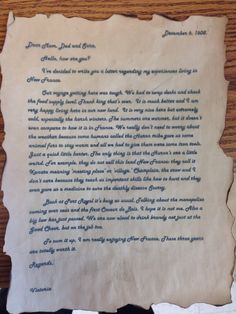 December 6, 1606.
Dear Mom, Dad and Sara,
Hello, how are you?
I've decided to write you a letter regarding my experiences living in
New France.
Our voyage getting here was tough. We had to keep
the food supply level. Thank king that's over. It is much better and I am
very happy living here in our new land. It is very nice here but extremely
cold, especially the harsh winters. The summers are summer, but it doesn't
even compare to how it is in France. We really don't need to worry about
the weather because some humans called the Huron male give us some
animal furs to stay warm and all we had to give them were some iron tools.
Just a quick little barter. The only thing is that the Huron's use a little
weird. For example, they do not call this land New France; they call it
Kanata meaning 'meeting place' or 'village.' Champlain, the crew and I
don't care because they teach us important skills like how to hunt and they
even gave us a medicine to cure the deathly disease Scurvy.
Back at Port Royal it's busy as usual. Talking about the monopolies
coming over seas and the first Coureur de Bois. I hope it is not me. Also a
big law has just passed. We are now aloud to drink brandy not just at the
Good Cheer, but on the job too.
To sum it up, I am really enjoying New France. These three years
are totally worth it.
Regards,
Victoria